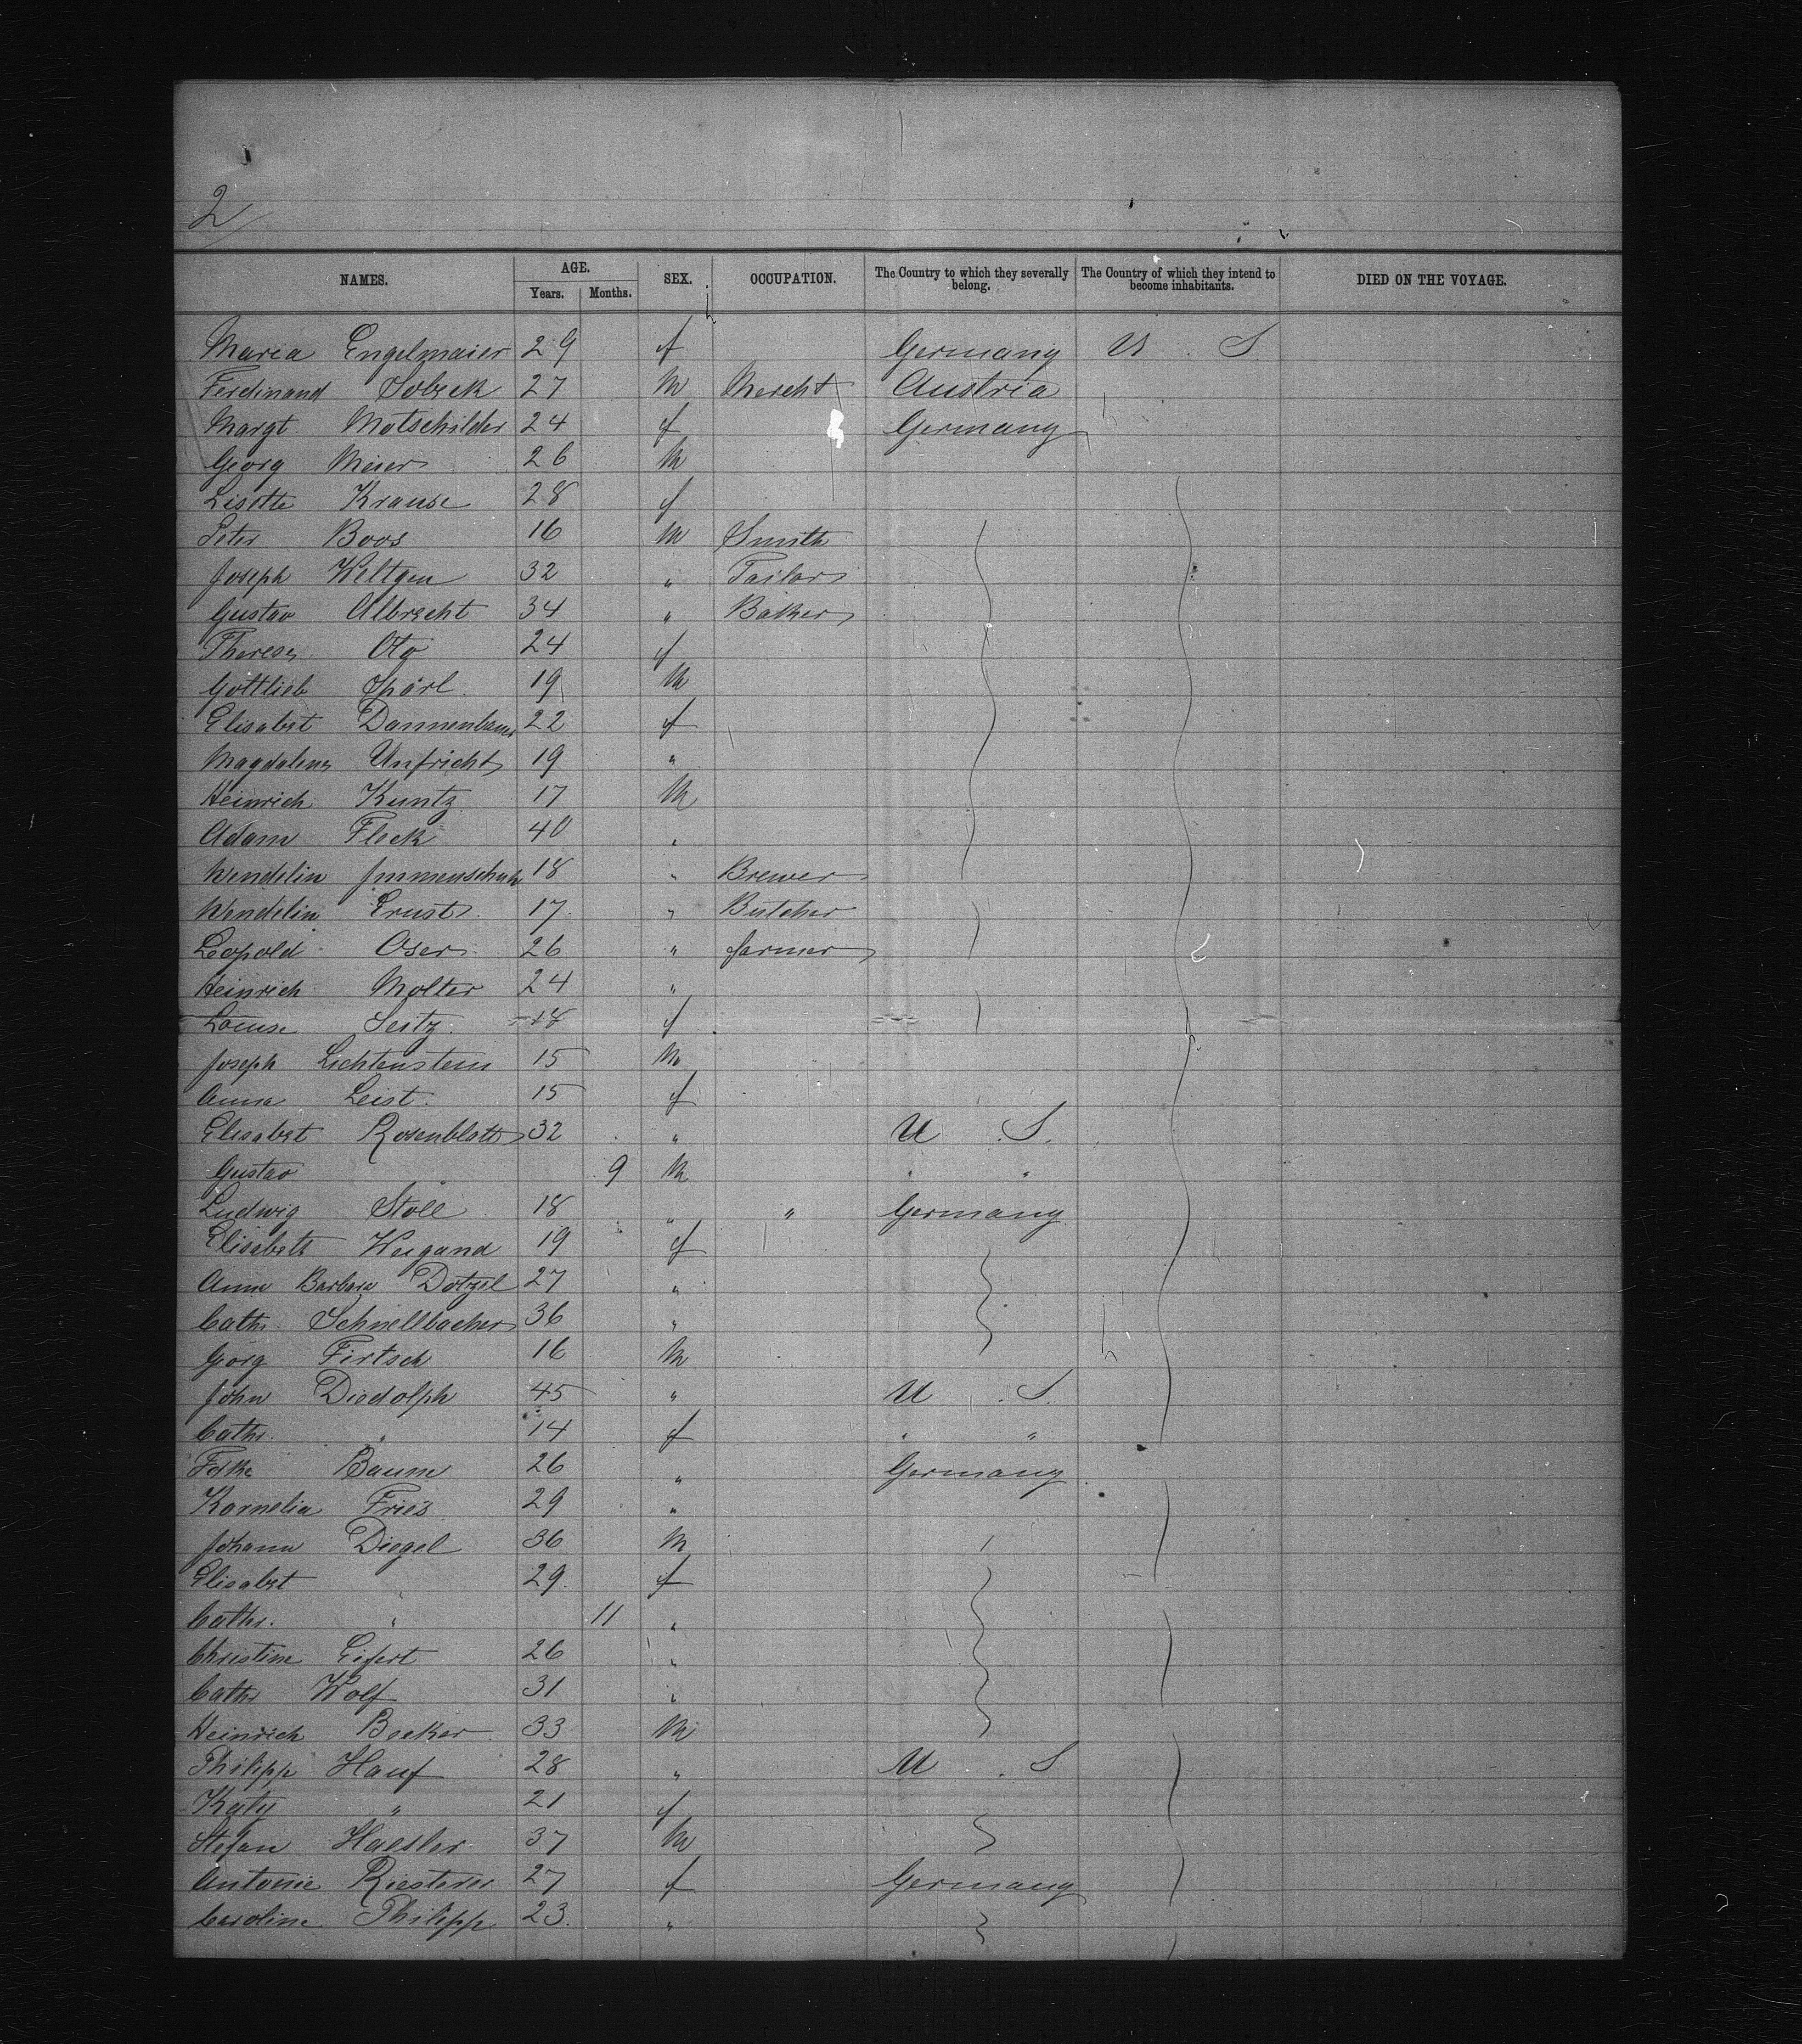 2
NAMES. AGE. SEX. OCCUPATION. The Country to which they severally belong. The Country of which they intend to become inhabitants. DIED ON THE VOYAGE.
Years. Months.
Maria Engelmaier 29 f Germany U. S
Ferdinand Sobeck 27 M Mercht Austria
Margt Motschilder 24 f Germany
Georg Meier 26 M
Lisette Krause 28 f
Peter Boos 16 M Smith
Joseph Weltgen 32 " Tailor
Gustav Albrecht 34 " Baker
Therese Oto 24 f
Gottlieb Spörl 19 M
Elisabet Dannenbauer 22 f
Magdalena Unfricht 19 "
Heinrich Kuntz 17 M
Adam Fleck 40 "
Wendelin Immenschuh 18 " Brewer
Wendelin Ernst 17 " Butcher
Leopold Oser 26 " farmer
Heinrich Molter 24 "
Louise Seitz 18 f
Joseph Lichtenstein 15 M
Anna Leist 15 f
Elisabet Rosenblatt 32 " U. S.
Gustav " 9 M " "
Ludwig Stoll 18 " " Germany
Elisabeth Weigand 19 f
Anna Barbara Dotzel 27 "
Cathr. Schnellbacher 36 "
Georg Firtsch 16 M
John Diedolph 45 " U. S.
Cathr. " 14 f " "
Baum 26 " Germany
Kornelia Fries 29 "
Johann Diegel 36 M
Elisabet " 29 f
Cathr. " 11 "
Christine Eifert 26 "
Cathr Wolf 31 "
Heinrich Becker 33 M
Philipp Hauf 28 " U. S
Katy " 21 f
Stefan Haesler 37 M
Antonie Riesterer 27 f Germany
Caroline Philipp 23 "